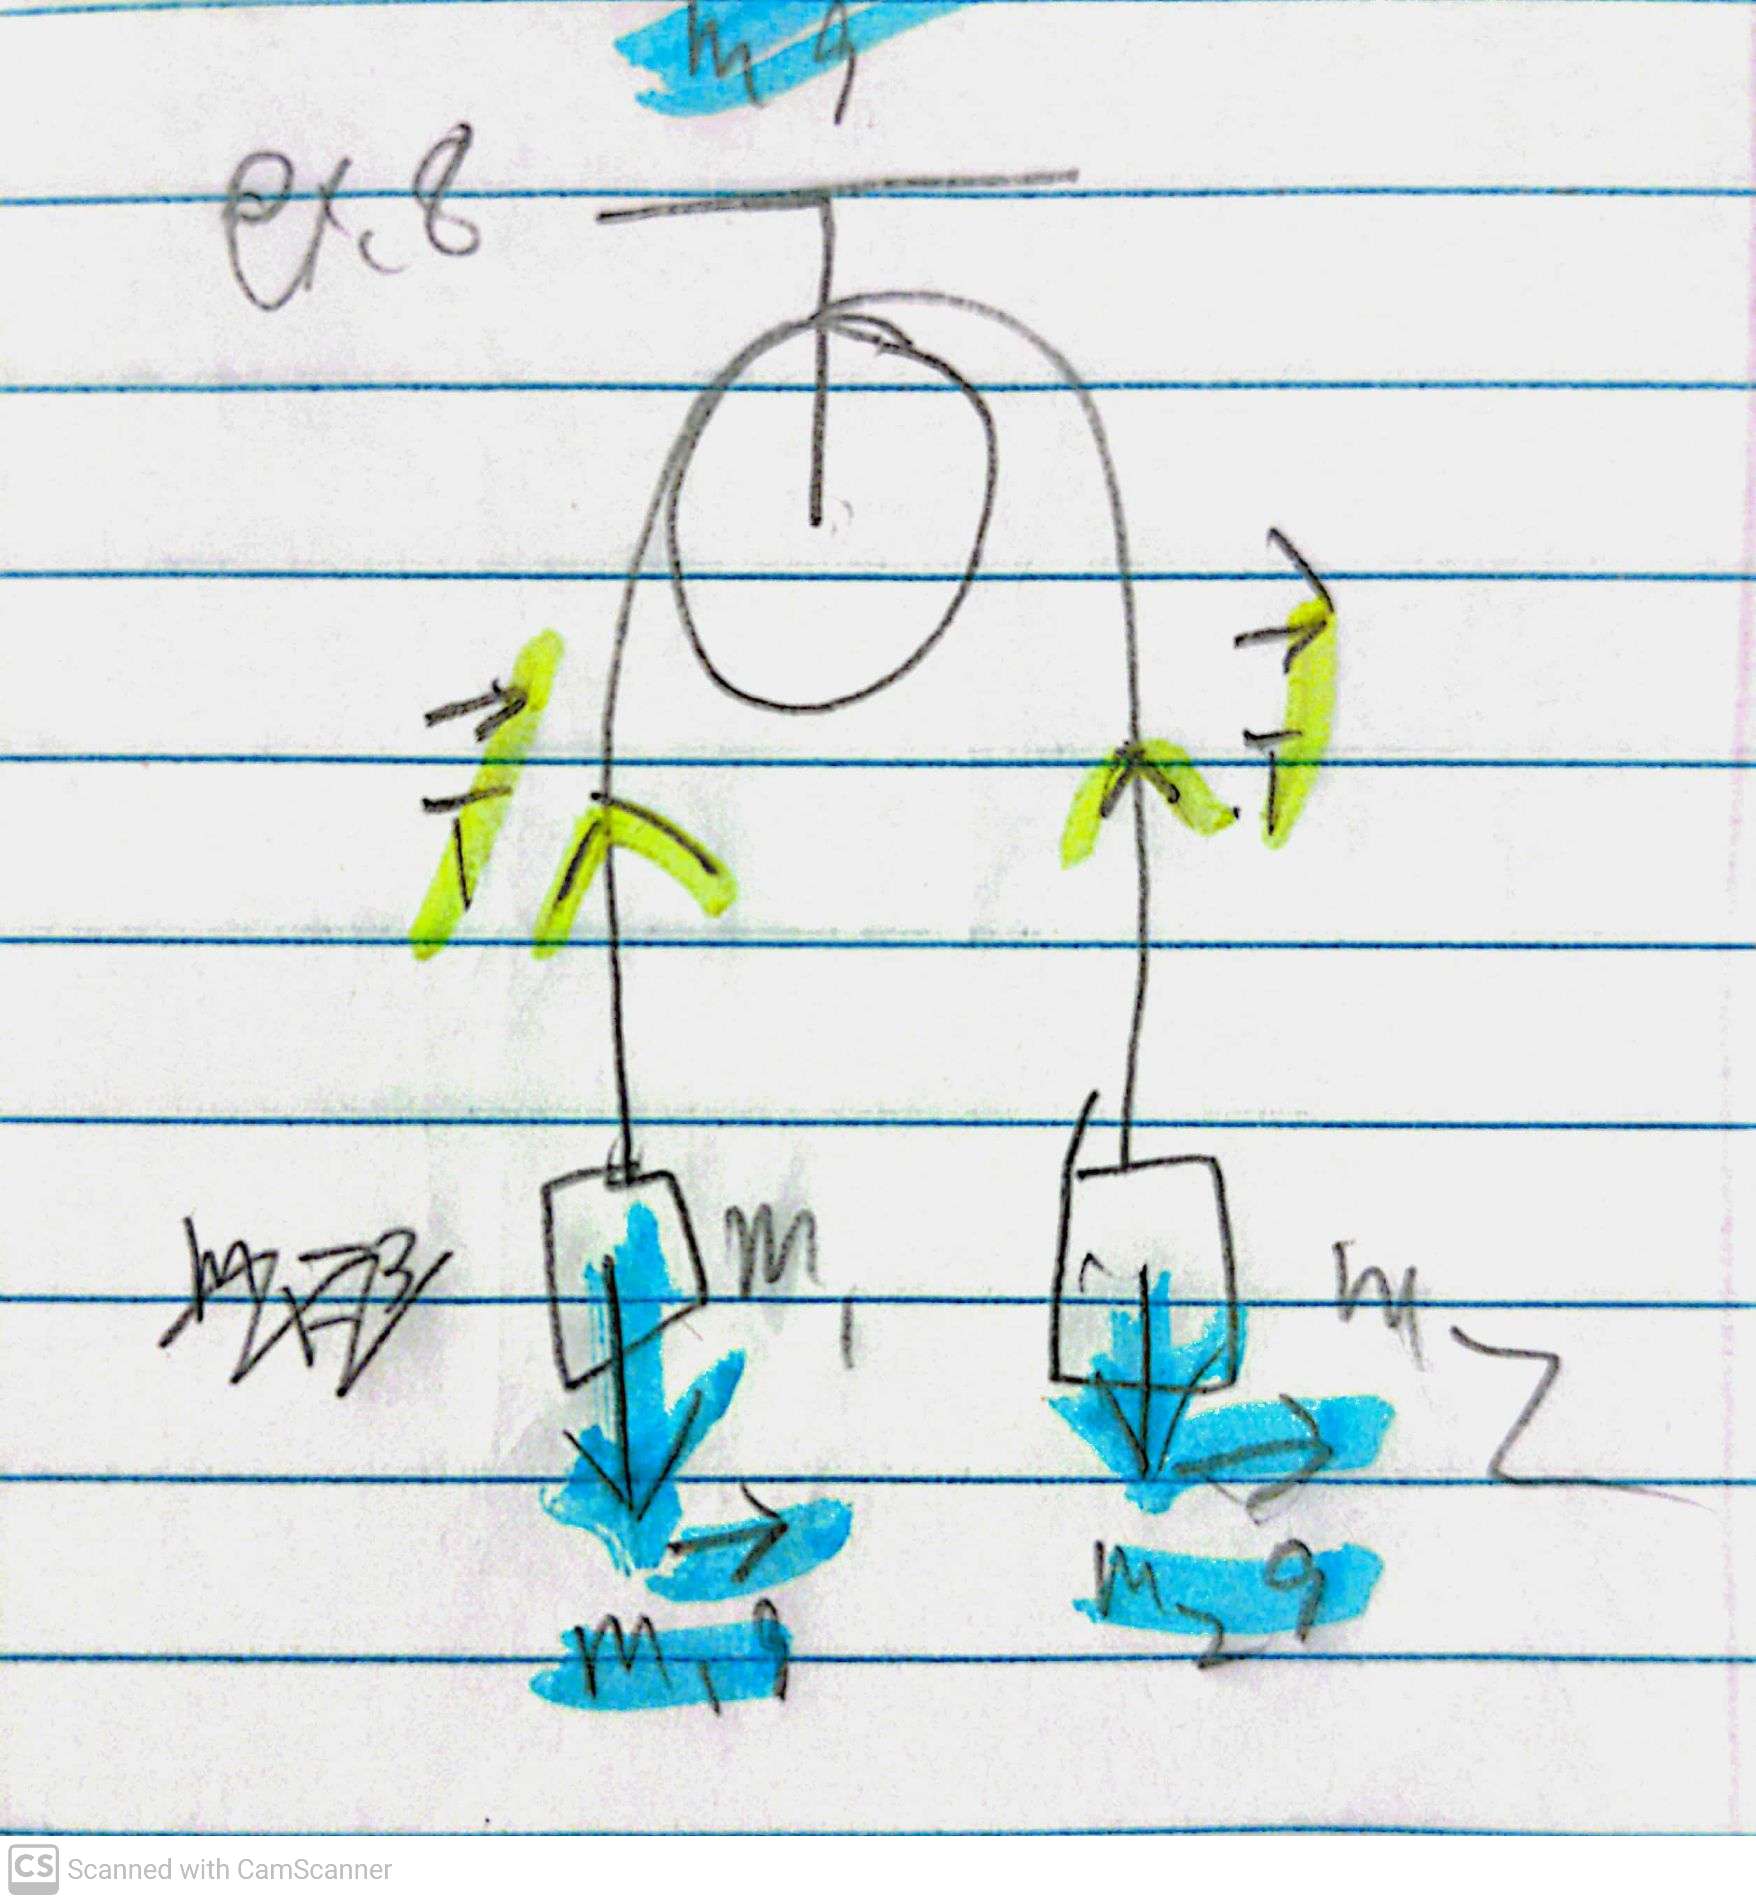 m g
ex. 8
T
T
m₁
m₂
m₁g
m₂g
CS Scanned with CamScanner